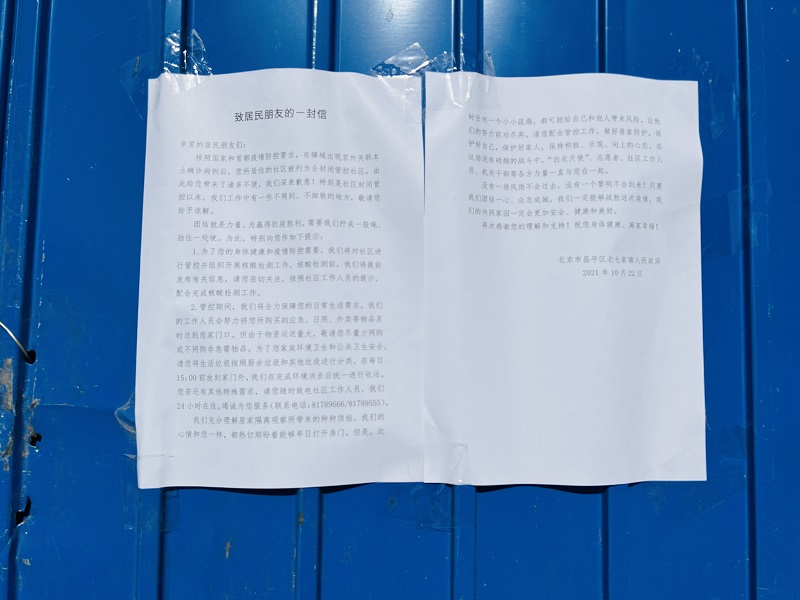 致居民朋友的一封信
亲爱的居民朋友们：
按照国家和首都疫情防控要求，在镇域出现京外关联本
土确诊病例后，您所居住的社区被列为全封闭管控社区。由
此给您带来了诸多不便，我们深表歉意！特别是社区封闭管
控以来，我们工作中有一些不周到、不细致的地方，敬请您
给予谅解。
团结就是力量。为赢得抗疫胜利，需要我们拧成一股绳、
劲往一处使。为此，特别向您作如下提示：
1.为了您的身体健康和疫情防控需要，我们将对社区进
行管控并组织开展核酸检测工作。核酸检测前，我们将提前
发布有关信息，请您密切关注，按照社区工作人员的提示，
配合完成核酸检测工作。
2.管控期间，我们将全力保障您的日常生活需求。我们
的工作人员会努力将您所购买的应急、日用、外卖等物品及
时送到您家门口。但由于物资运送量大，敬请您尽量少网购
或不网购非急需物品。为了您家庭环境卫生和公共卫生安全，
请您将生活垃圾按照厨余垃圾和其他垃圾进行分类，在每日
15:00前放到家门外，我们在完成环境消杀后统一进行收运。
您若还有其他特殊需求，请您随时致电社区工作人员，我们
24小时在线，竭诚为您服务（联系电话:81789666/81789555）。
我们充分理解居家隔离观察所带来的种种烦恼，我们的
心情和您一样，都热切期盼着能够早日打开房门。但是，此
时任何一个小小疏漏，都可能给自己和他人带来风险，让我
们的努力前功尽弃。请您配合管控工作，做好居家防护，保
护好自己，保护好家人，保持积极、乐观、向上的心态。在
这场没有硝烟的战斗中，“白衣天使”、志愿者、社区工作人
员、机关干部等各方力量一直与您在一起。
没有一场风雨不会过去，没有一个黎明不会到来！只要
我们团结一心、众志成城，我们一定能够战胜这次疫情，我
们的共同家园一定会更加安全、健康和美好。
再次感谢您的理解和支持！祝您身体健康、阖家幸福！
北京市昌平区北七家镇人民政府
2021年10月22日